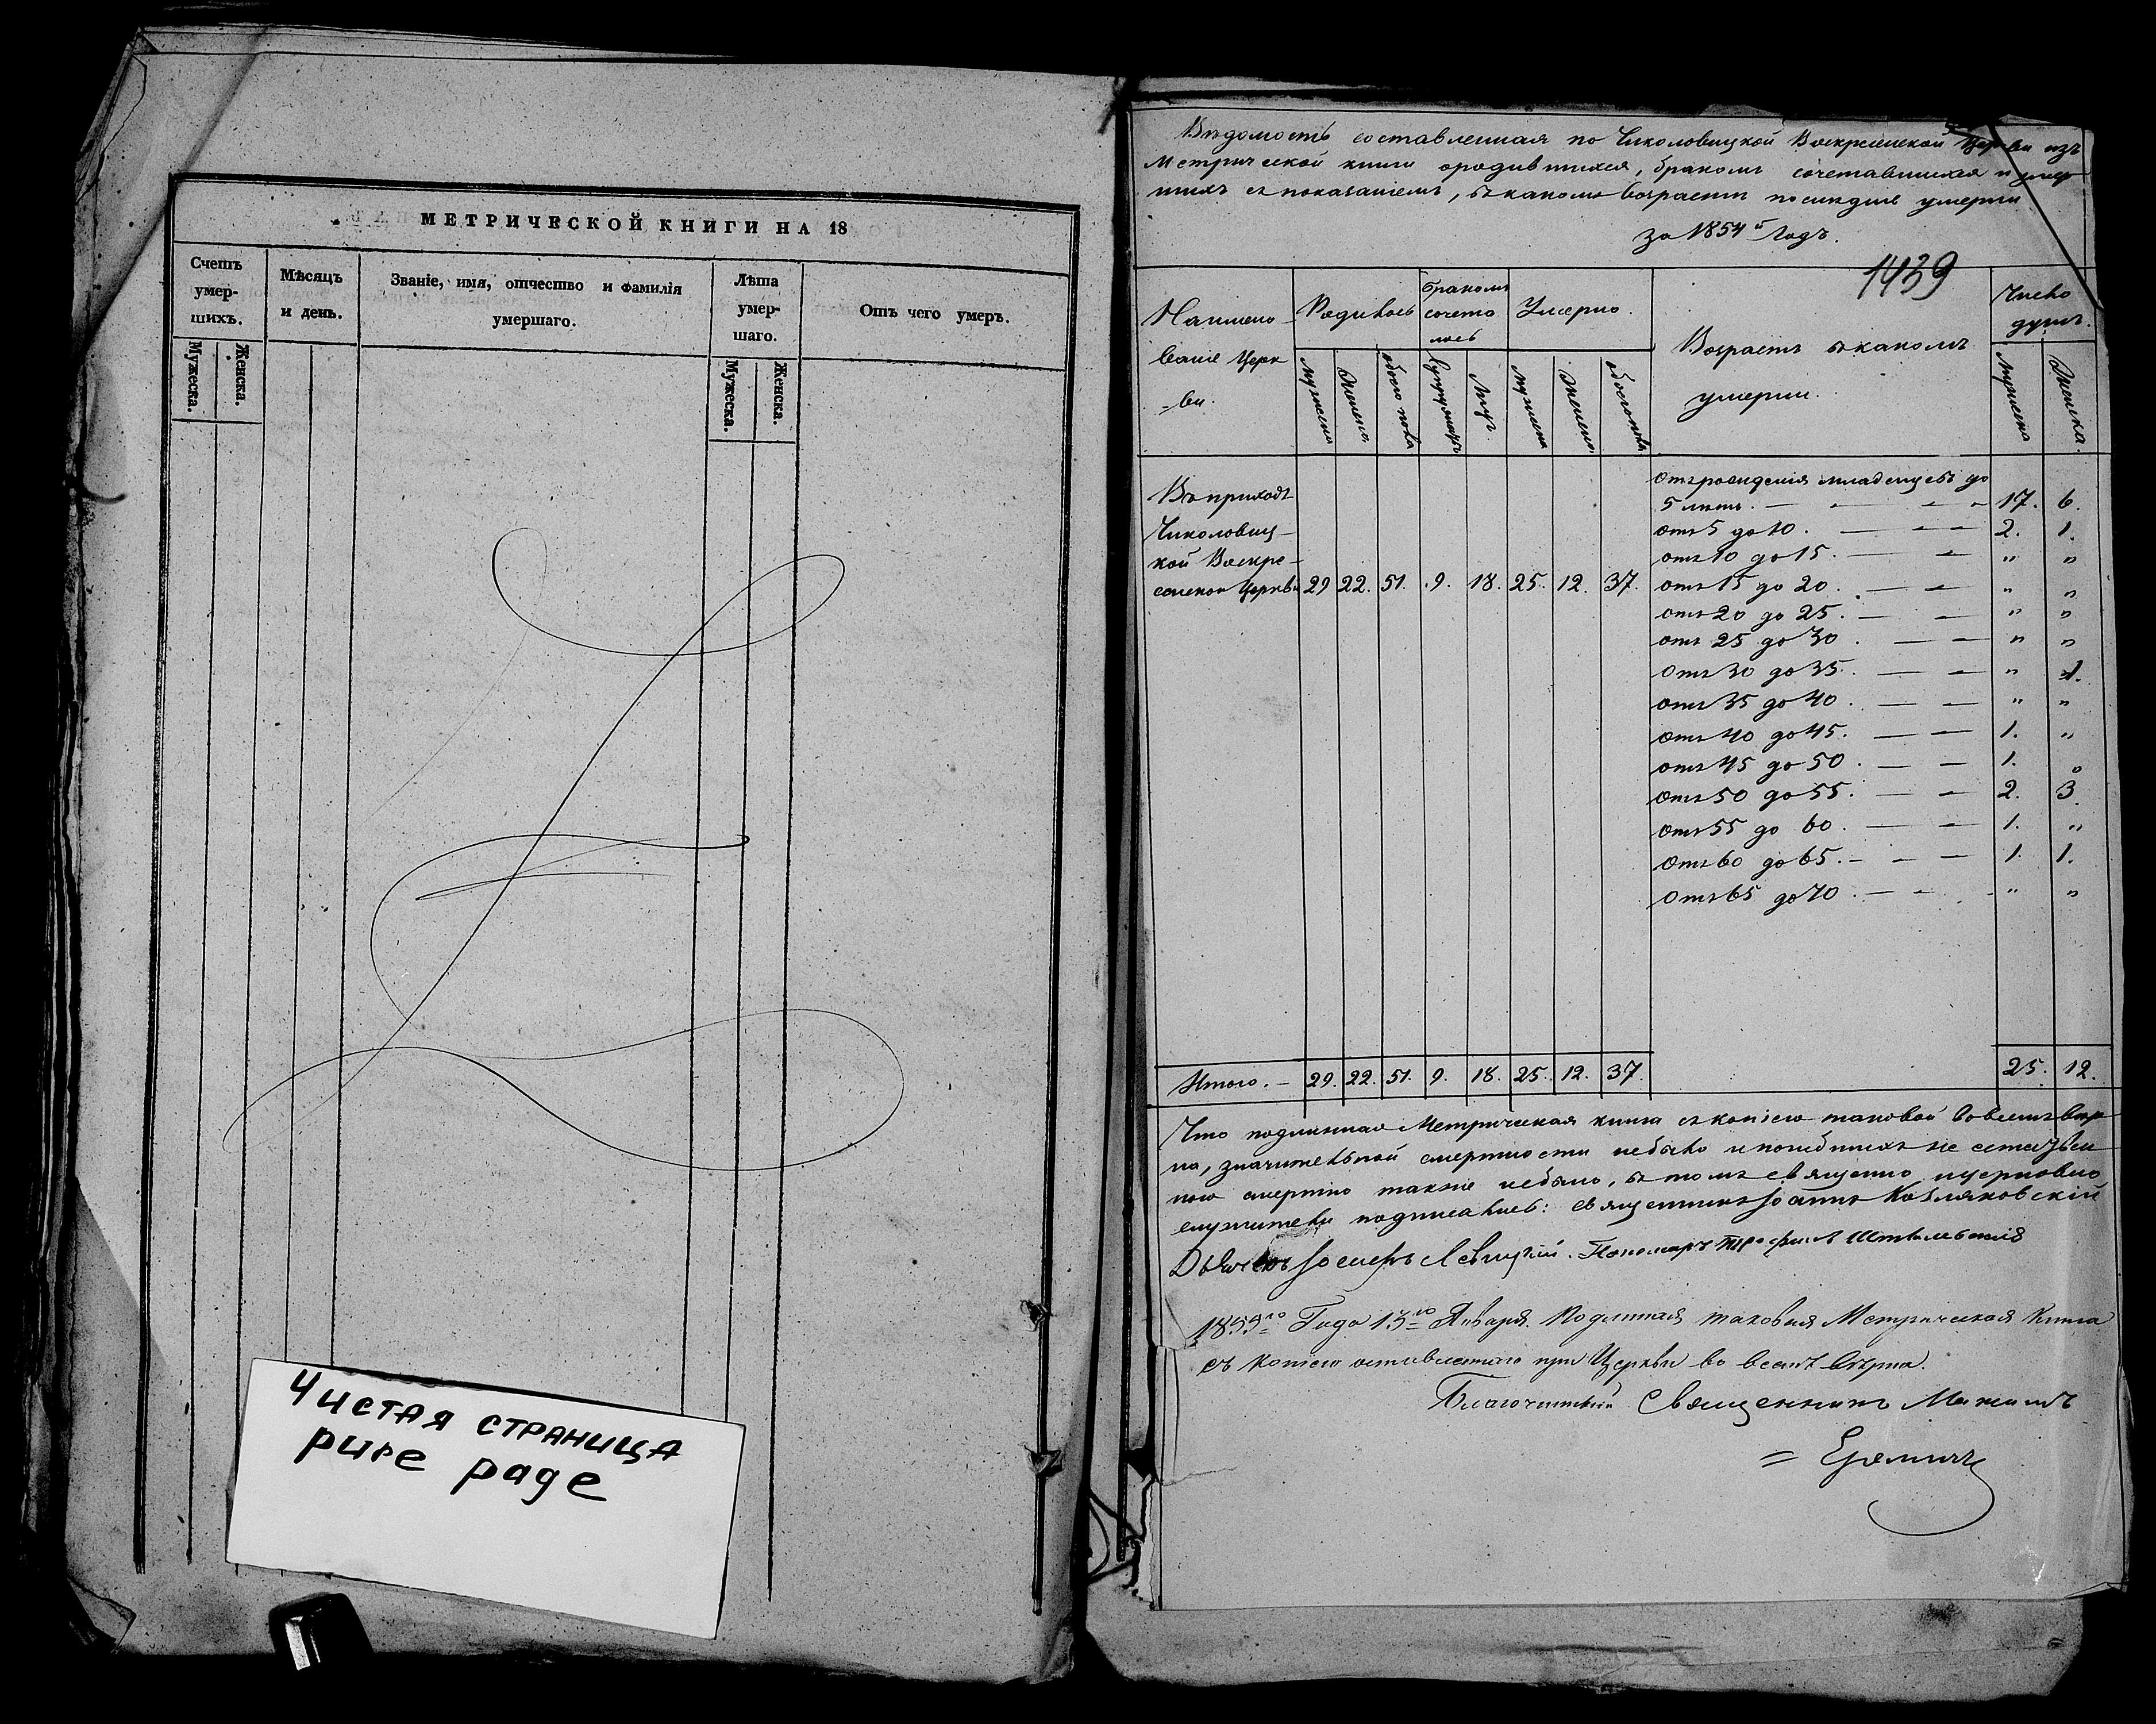 МЕТРИЧЕСКОЙ КНИГИ НА 18
Счетъ умер- шихъ.
Мѣсяцъ и день.
Званіе, имя, отчество и фамилія умершаго.
Лѣта умер- шаго.
Отъ чего умеръ.
Мужеска.
Женска.
Мужеска.
Женска.
Чистая страница
pure page
Вѣдомость составленная по Чиколовицкой Воскресенской Церкви изъ
Метрической книги о родившихся, бракомъ сочетавшихся и умер
шихъ съ показаніемъ, въ какомъ возрастѣ послѣдніе умерли
за 1854й Годъ.
1439
Наимено
ваніе Церк
-ви.
Родилось
бракомъ
сочета
лось
Умерло.
Возрастъ въ какомъ
умерли.
Число
душъ.
мужеска
Женска.
обоего пола
Супружествъ
Лицъ.
мужеска
Женска.
обоего пола
Мужеска
Женска.
Въ приходѣ
Чиколовиц-
кой Воскре-
сенской Церкви 29 22. 51. 9. 18. 25. 12. 37.
Отъ рожденія младенцевъ до
5 лѣтъ. 17. 6.
отъ 5 до 10. 2. 1.
отъ 10 до 15. " "
отъ 15 до 20. " "
отъ 20 до 25. " "
отъ 25 до 30. " "
Отъ 30 до 35. " 1.
отъ 35 до 40. " "
отъ 40 до 45. 1. "
отъ 45 до 50. 1. "
отъ 50 до 55. 2. 3.
Отъ 55 до 60. 1. "
Отъ 60 до 65. 1. 1.
Отъ 65 до 70. " "
Итого. 29. 22. 51. 9. 18. 25. 12. 37. 25. 12.
Что подлинная Метрическая книга съ копіею таковой во всемъ вѣр
на, значительной смертности небыло и погибшихъ не естествен
ною смертію также небыло, въ томъ священно церковно
служители подписались: священникъ Іоаннъ Козляковскій
Дьячекъ Іосифъ Левицкій. Пономарь
1855го Года 13го Января. Подлинная таковая Метрическая Книга
съ копіею оставленною при Церкви во всемъ вѣрна.
Благочинный Священникъ Максимъ
= Еремичъ